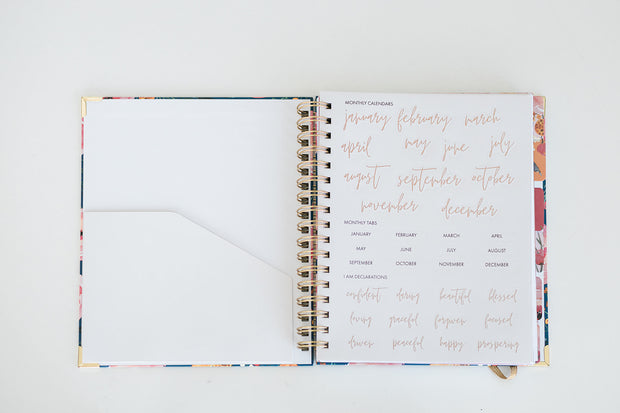 MONTHLY CALENDARS
january february march
april may june july
august september october
november december
MONTHLY TABS
JANUARY FEBRUARY MARCH APRIL
MAY JUNE JULY AUGUST
SEPTEMBER OCTOBER NOVEMBER DECEMBER
I AM DECLARATIONS
confident daring beautiful blessed
loving graceful forgiven focused
driven peaceful happy prospering